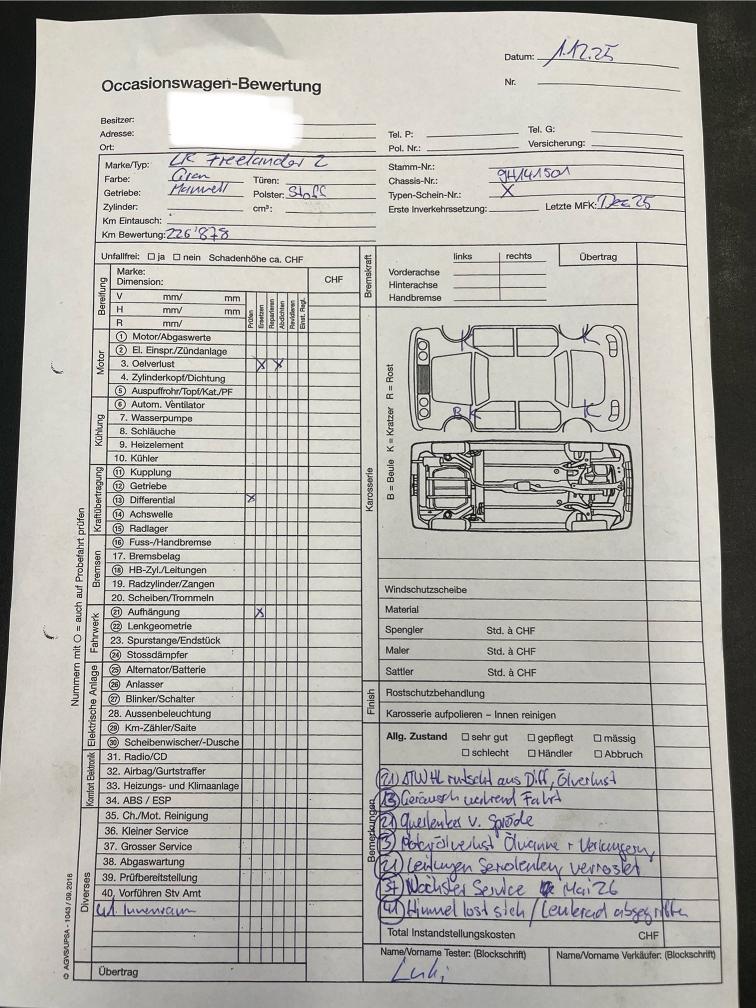 Datum: 1.12.25
Occasionswagen-Bewertung
Nr.
Besitzer:
Adresse:
Ort:
Tel. P:
Tel. G:
Pol. Nr.:
Versicherung:
Marke/Typ: LR Freelander 2
Farbe:
Türen:
Getriebe: Manuell
Polster: Stoff
Zylinder:
cm³:
Km Eintausch:
Km Bewertung: 226'878
Stamm-Nr.:
Chassis-Nr.: 9H141501
Typen-Schein-Nr.: X
Erste Inverkehrssetzung:
Letzte MFK: Dez 25
Unfallfrei: ☐ ja ☐ nein Schadenhöhe ca. CHF
Bereifung
Marke:
Dimension:
CHF
V mm/ mm
H mm/ mm
R mm/
Prüfen
Ersetzen
Reparieren
Abdichten
Revidieren
Einst. Regl.
Motor
1 Motor/Abgaswerte
2 El. Einspr./Zündanlage
3. Oelverlust X X
4. Zylinderkopf/Dichtung
5 Auspuffrohr/Topf/Kat./PF
Kühlung
6 Autom. Ventilator
7. Wasserpumpe
8. Schläuche
9. Heizelement
10. Kühler
Kraftübertragung
11 Kupplung
12 Getriebe
13 Differential X
14 Achswelle
15 Radlager
Bremsen
16 Fuss-/Handbremse
17. Bremsbelag
18 HB-Zyl./Leitungen
19. Radzylinder/Zangen
20. Scheiben/Trommeln
Fahrwerk
21 Aufhängung X
22 Lenkgeometrie
23. Spurstange/Endstück
24 Stossdämpfer
Elektrische Anlage
25 Alternator/Batterie
26 Anlasser
27 Blinker/Schalter
28. Aussenbeleuchtung
29 Km-Zähler/Saite
30 Scheibenwischer/-Dusche
Komfort Elektronik
31. Radio/CD
32. Airbag/Gurtstraffer
33. Heizungs- und Klimaanlage
34. ABS / ESP
Diverses
35. Ch./Mot. Reinigung
36. Kleiner Service
37. Grosser Service
38. Abgaswartung
39. Prüfbereitstellung
40. Vorführen Stv Amt
41. Innenraum
Übertrag
Nummern mit O = auch auf Probefahrt prüfen
© AGVS/UPSA - 1043 / 09.2016
Bremskraft
links
rechts
Übertrag
Vorderachse
Hinterachse
Handbremse
Karosserie
B = Beule K = Kratzer R = Rost
K
K
B K
K
Windschutzscheibe
Material
Spengler Std. à CHF
Maler Std. à CHF
Sattler Std. à CHF
Finish
Rostschutzbehandlung
Karosserie aufpolieren – Innen reinigen
Allg. Zustand ☐ sehr gut ☐ gepflegt ☐ mässig
☐ schlecht ☐ Händler ☐ Abbruch
Bemerkungen
21 ATW HL rutscht aus Diff, Ölverlust
13 Geräusch während Fahrt
21 Querlenker v. Spröde
3 Motorölverlust Ölwanne +
21 Leitungen Servolenkung verrostet
37 Nächster Service Mai 26
41 Himmel löst sich / Lenkrad abgegriffen
Total Instandstellungskosten CHF
Name/Vorname Tester: (Blockschrift)
Name/Vorname Verkäufer: (Blockschrift)